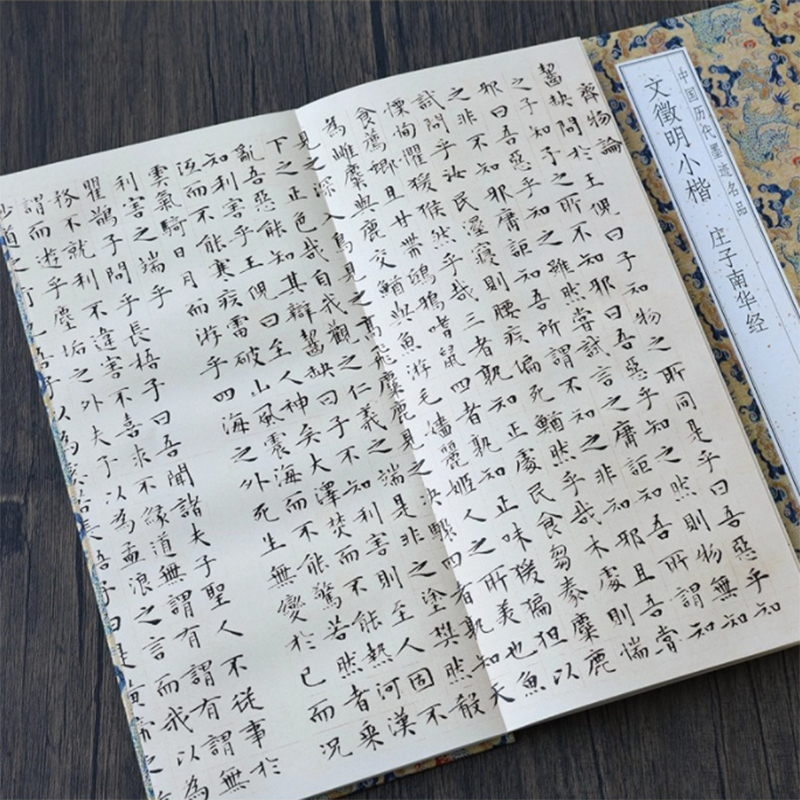 中国历代墨迹名品
文徵明小楷 庄子南华经
齊物論
齧缺問於王倪曰子知物之所同是乎曰吾惡乎知
之子知子之所不知邪曰吾惡乎知之然則物無知
邪曰吾惡乎知之雖然嘗試言之庸詎知吾所謂知
之非不知邪庸詎知吾所謂不知之非知邪且吾嘗
試問乎汝民溼寢則腰疾偏死鰌然乎哉木處則惴
慄恂懼猨猴然乎哉三者孰知正處民食芻豢麋鹿
食薦蝍且甘帶鴟鴉嗜鼠四者孰知正味猨猵狙以
為雌麋與鹿交鰌與魚游毛嬙麗姬人之所美也魚
見之深入鳥見之高飛麋鹿見之決驟四者孰知天
下之正色哉自我觀之仁義之端是非之塗樊然殽
亂吾惡能知其辯齧缺曰子不知利害則至人固不
知利害乎王倪曰至人神矣大澤焚而不能熱河漢
沍而不能寒疾雷破山風震海而不能驚若然者乘
雲氣騎日月而游乎四海之外死生無變於已而況
利害之端乎
瞿鵲子問乎長梧子曰吾聞諸夫子聖人不從事於
務不就利不違害不喜求不緣道無謂有謂有謂無
謂而遊乎塵垢之外夫子以為孟浪之言而我以為
妙道之行也吾子以為奚若長梧子曰是黃帝之